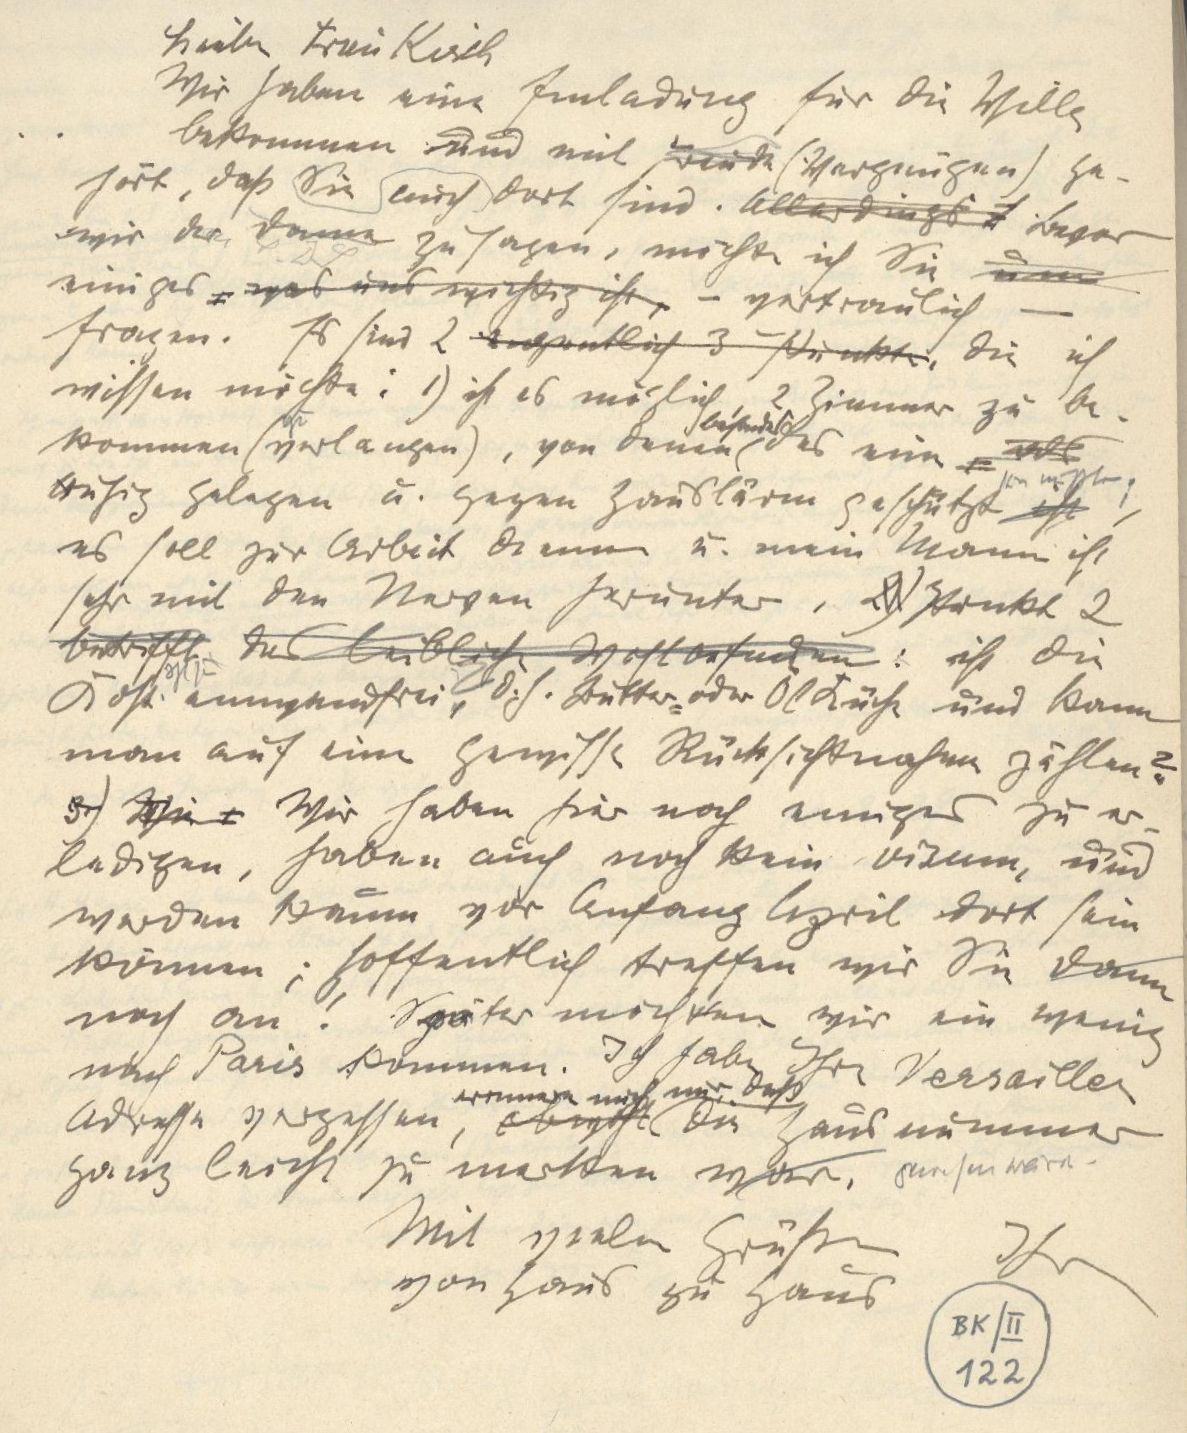 Liebe Frau Kisch
Wir haben eine Einladung für die Villa
bekommen und mit Freude (Vergnügen) ge-
hört, daß Sie auch dort sind. Allerdings Bevor
wir der Dame zusagen, möchte ich Sie um
einiges was uns wichtig ist, – vertraulich –
fragen. Es sind 2 eigentlich 3 Punkte, die ich
wissen möchte: 1) ist es möglich, 2 Zimmer zu be-
kommen (zu verlangen), von denen besonders das eine
ruhig gelegen u. gegen Hauslärm geschützt sein müßte; ist,
es soll zur Arbeit dienen u. mein Mann ist
sehr mit den Nerven herunter, 2) Punkt 2
betrifft das leibliche Wohlbefinden: ist die
Kost einwandfrei, d.h. Butter- oder Öl Küche und kann
man auf eine gewisse Rücksichtnahme zählen?
3) Wir haben hier noch einiges zu er-
ledigen, haben auch noch kein Visum, und
werden kaum vor Anfang April dort sein
können; hoffentlich treffen wir Sie dann
noch an! Später möchten wir ein wenig
nach Paris kommen. Ich habe Ihre Versailler
Adresse vergessen, erinnere mich nur, daß obwohl die Hausnummer
ganz leicht zu merken war. gewesen wäre.
Mit vielen Grüßen Ihr
von Haus zu Haus
BK/II
122